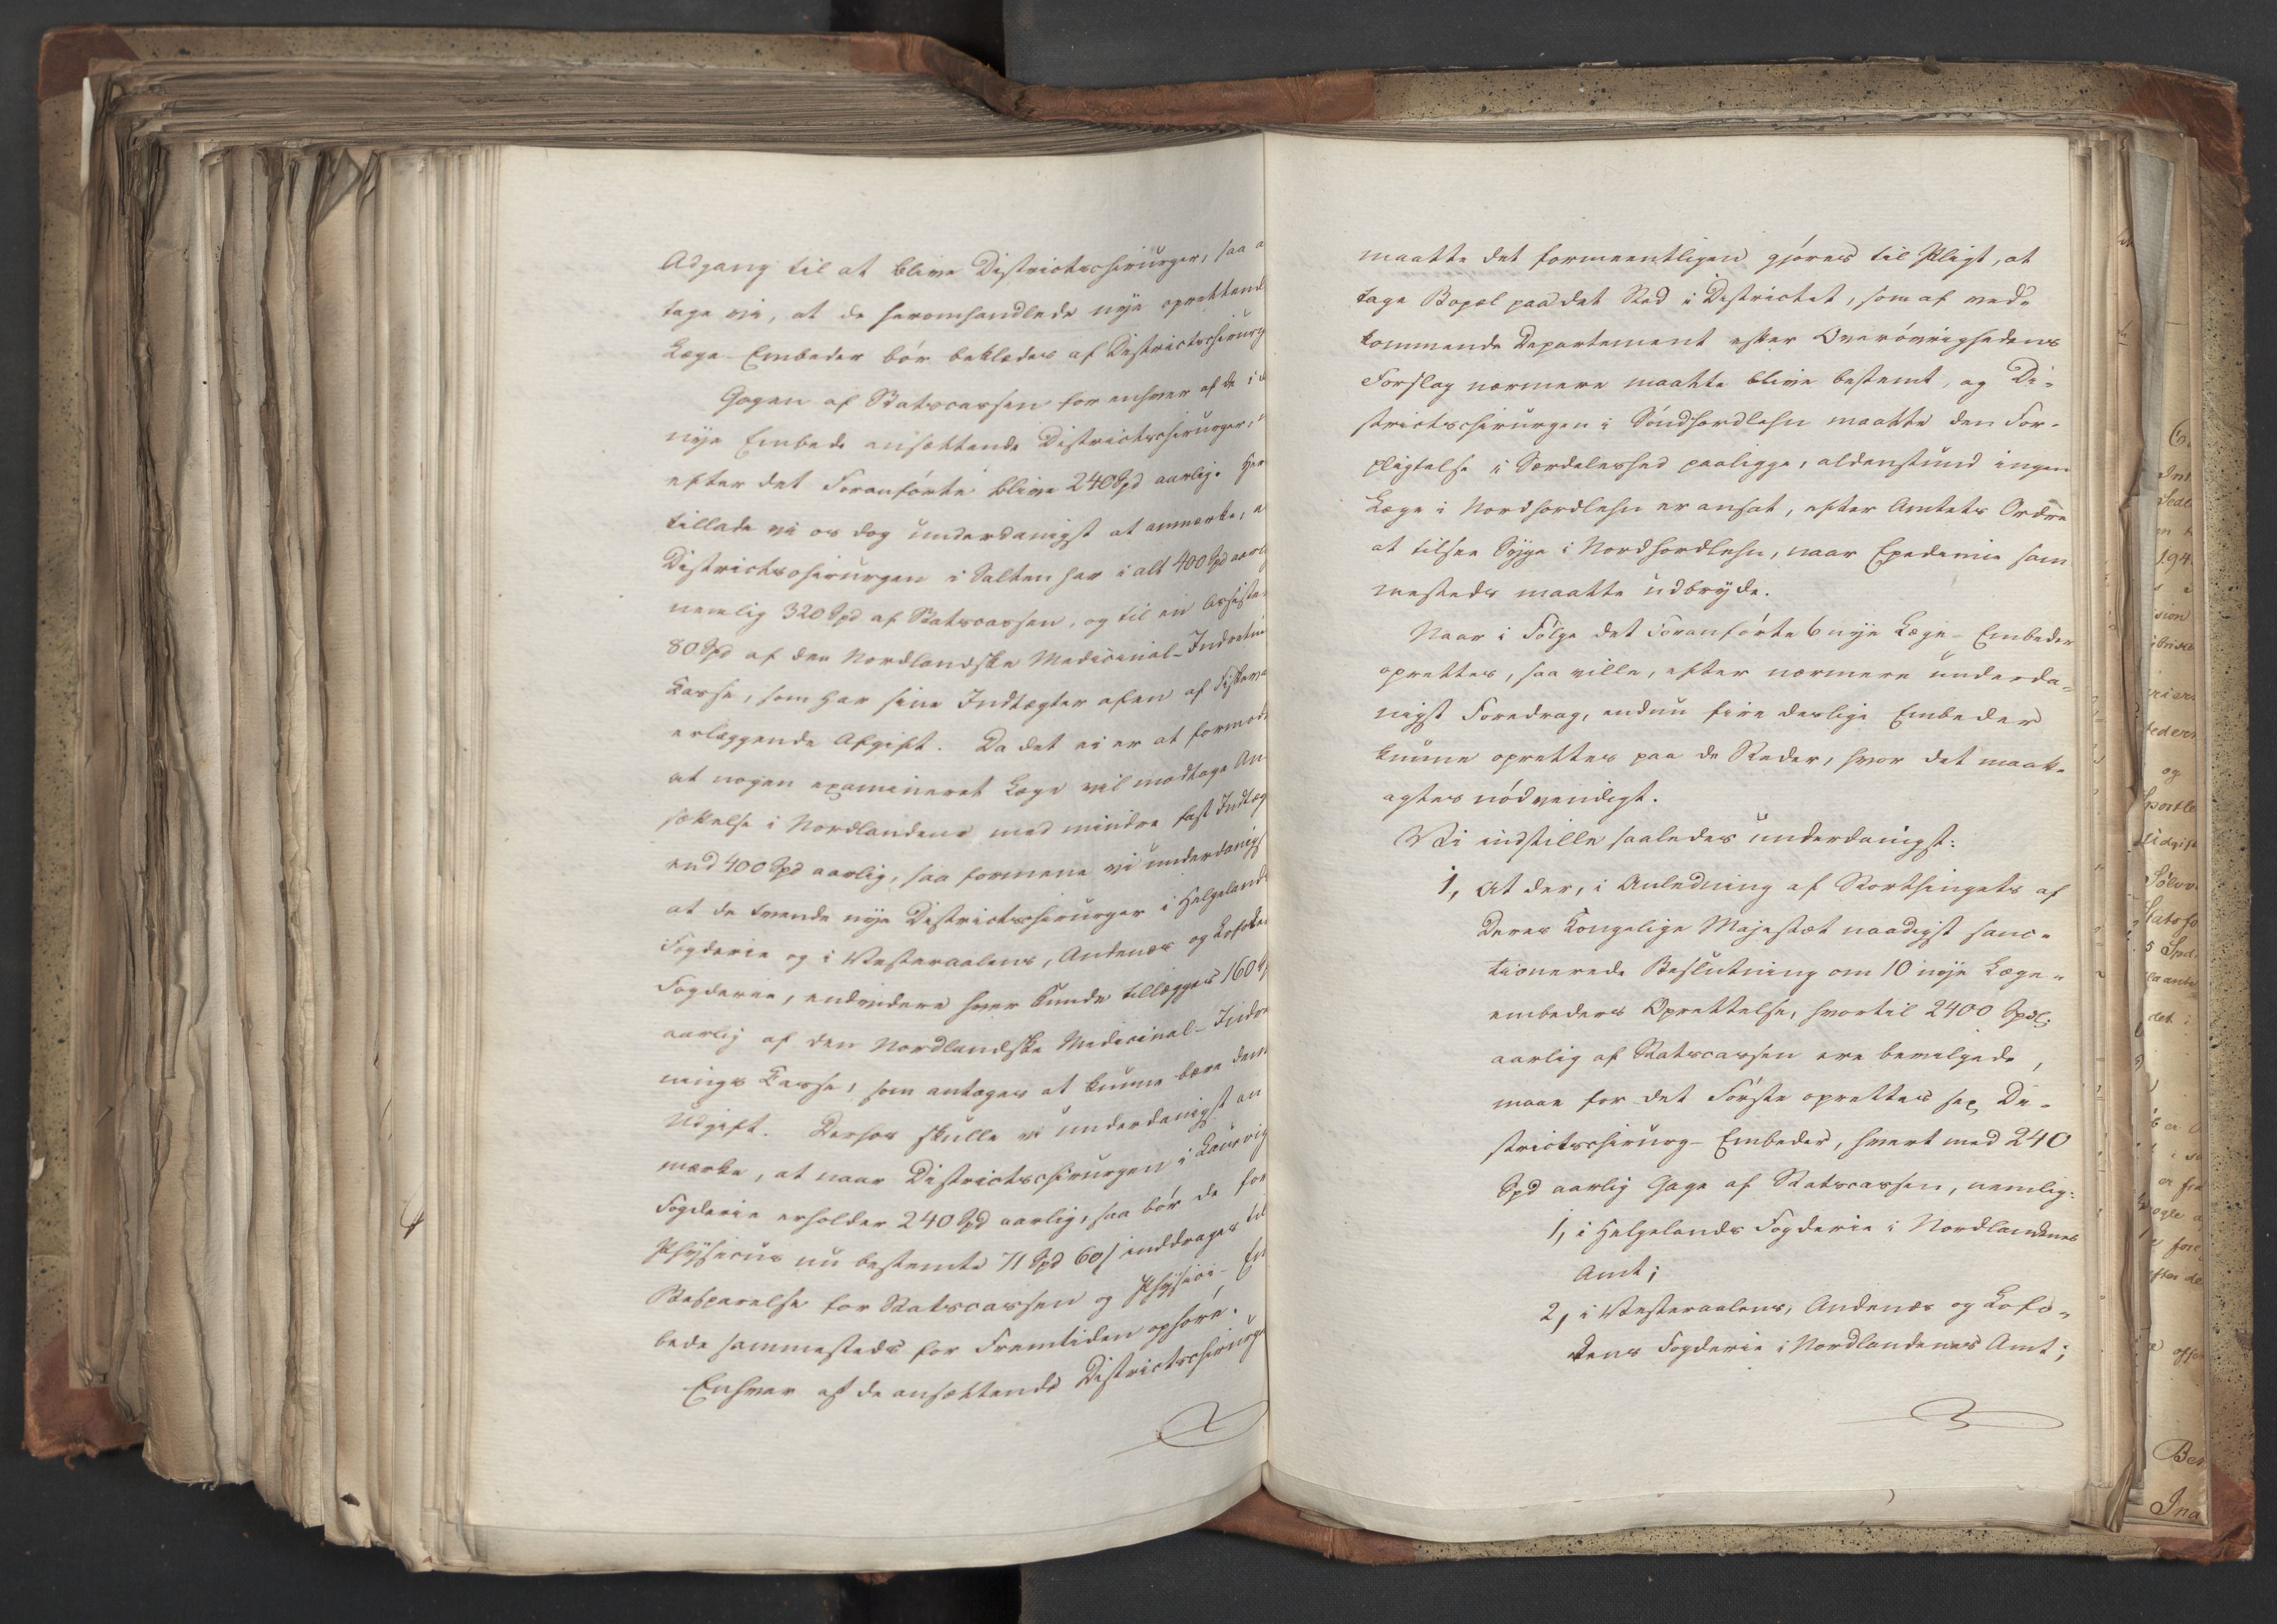 Adgang til at blive Districtschirurger, saa a
tage vi, at de heromhandlede nye oprettend
Læge-Embeder bör beklædes af Districtschirurg
Gagen af Statscassen for enhver af de i d
nye Embede ansættende Districtschirurger,
efter det Foranförte blive 240 Spd aarlig. Her
tillade vi os dog underdanigst at anmærke, a
Districtschirurgen i Salten har i alt 400 Spd aarl
nemlig 320 Spd af Statscassen, og til en Assiste
80 Spd af den Nordlandske Medicinal-Indretni
Casse, som har sine Indtægter af en af Fiskerne
erlæggende Afgift. Da det ei er at formode
at nogen examineret Læge vil modtage An-
sættelse i Nordlandene med mindre fast Indtæg
end 400 Spd aarlig, saa formene vi underdanigst
at de tvende nye Districtschirurger i Helgelands
Fogderie og i Vesteraalens, Andenæs og Lofoten
Fogderie, endvidere hver kunde tillægges 160 Sp
aarlig af den Nordlandske Medicinal-Indre
nings Casse, som antages at kunne bære denne
Udgift. Derhos skulle vi underdanigst an
mærke, at naar Districtschirurgen i Laurvig
Fogderie erholder 240 Spd aarlig, saa bör de for
Physicus nu bestemte 71 Spd 60 s inddrages til
Besparelse for Statscassen og Physici-Em
bede sammesteds for Fremtiden ophöre.
Enhver af de ansættende Districtschirurge
maatte det formeentligen gjöres til Pligt, at
tage Bopæl paa det Sted i Districtet, som af ved-
kommende Departement efter Overövrighedens
Forslag nærmere maatte blive bestemt, og Di-
strictschirurgen i Söndhordlehn maatte den For-
pligtelse i Særdeleshed paaligge, aldenstund ingen
Læge i Nordhordlehn er ansat, efter Amtets Ordre
at tilsee Syge i Nordhordlehn, naar Epedemie sam
mesteds maatte udbryde.
Naar i Fölge det Foranförte 6 nye Læge-Embeder
oprettes, saa ville, efter nærmere underda-
nigst Foredrag, endnu fire deslige Embeder
kunne oprettes paa de Steder, hvor det maatte
agtes nödvendigt.
Vi indstille saaledes underdanigst:
1, At der, i Anledning af Storthingets af
Deres Kongelige Majestæt naadigst sanc-
tionerede Beslutning om 10 nye Læge-
embeders Oprettelse, hvortil 2400 Spdl.
aarlig af Statscassen ere bevilgede,
maae for det Förste oprettes sex Di-
strictschirurg-Embeder, hvert med 240
Spd aarlig Gage af Statscassen, nemlig:
1, i Helgelands Fogderie i Nordlandenes
Amt;
2, i Vesteraalens, Andenæs og Lofo-
tens Fogderie i Nordlandenes Amt;